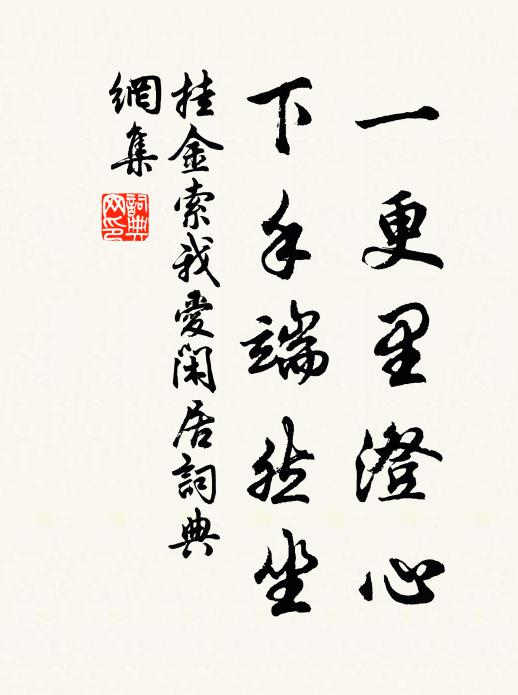 一更里澄心
下手端然坐
挂金索我愛閑居詞典
網集
詞典
网印